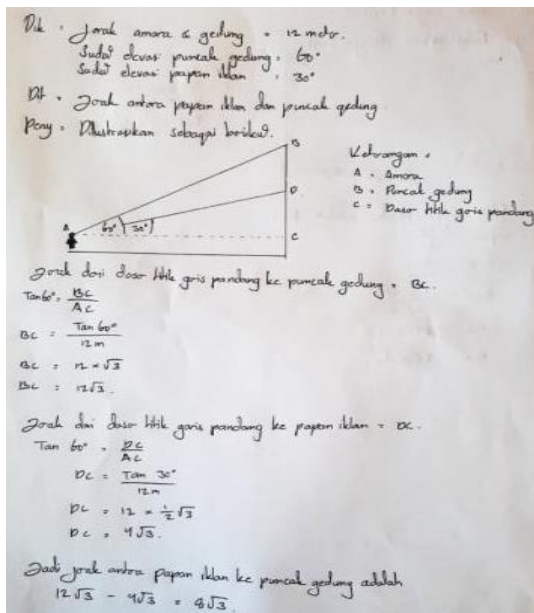 Dik : Jarak amora & gedung = 12 meter.
Sudut elevasi puncak gedung = 60°
Sudut elevasi papan iklan = 30°
Dit : Jarak antara papan iklan dan puncak gedung
Peny : Diilustrasikan sebagai berikut.
B
D
A
60°
30°
C
Keterangan :
A = Amora
B = Puncak gedung
C = Dasar titik garis pandang
Jarak dari dasar titik garis pandang ke puncak gedung = BC.
Tan 60° = BC/AC
BC = Tan 60°/12 m
BC = 12 × √3
BC = 12√3
Jarak dari dasar titik garis pandang ke papan iklan = DC.
Tan 60° = DC/AC
DC = Tan 30°/12 m
DC = 12 × 1/2 √3
DC = 4√3.
Jadi jarak antara papan iklan ke puncak gedung adalah
12√3 - 4√3 = 8√3